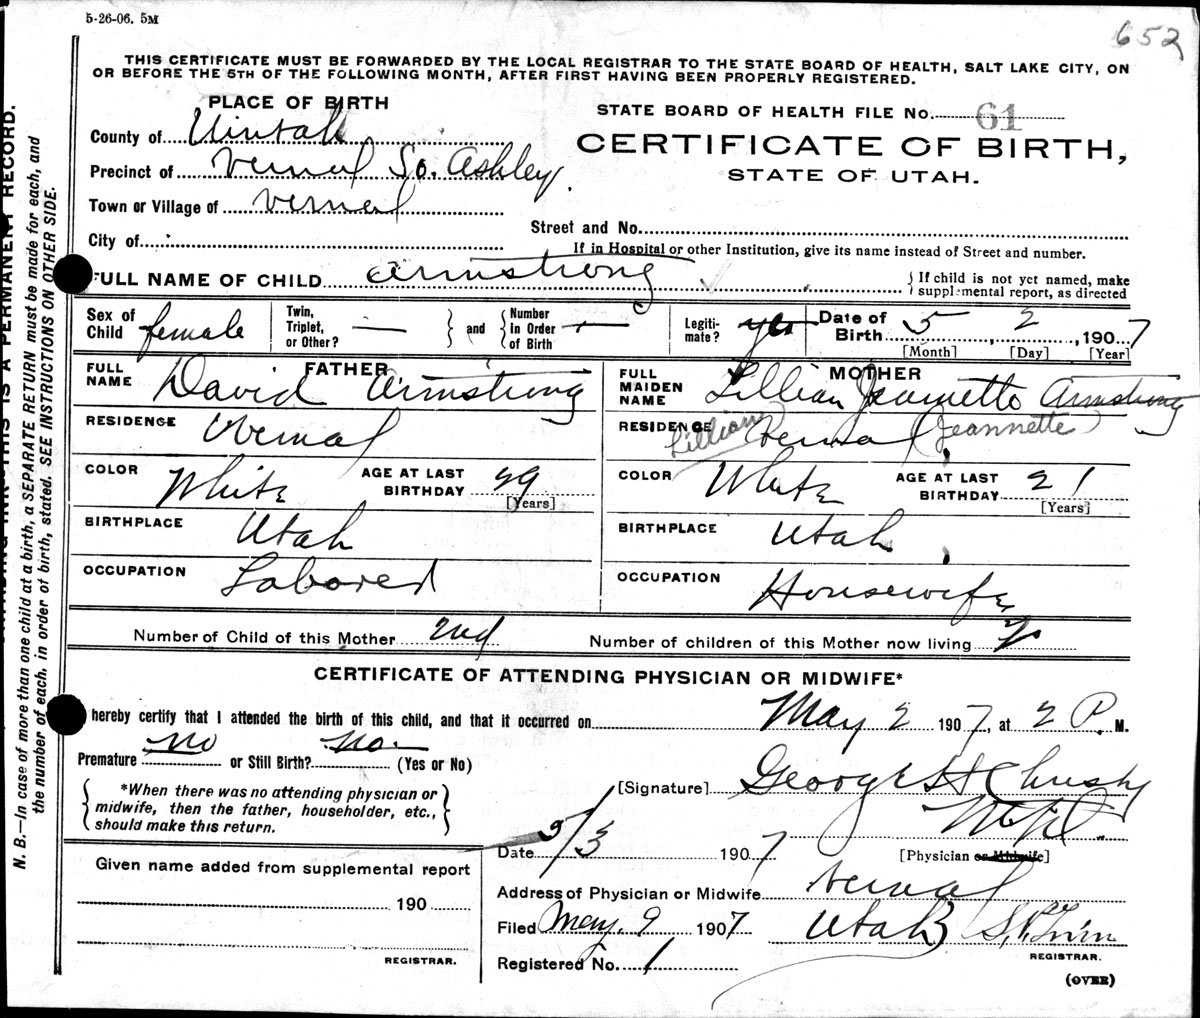 5-26-06. 5M
652
THIS CERTIFICATE MUST BE FORWARDED BY THE LOCAL REGISTRAR TO THE STATE BOARD OF HEALTH, SALT LAKE CITY, ON
OR BEFORE THE 5TH OF THE FOLLOWING MONTH, AFTER FIRST HAVING BEEN PROPERLY REGISTERED.
PLACE OF BIRTH
County of Uintah
Precinct of Vernal So. Ashley
Town or Village of Vernal
City of
STATE BOARD OF HEALTH FILE No. 61
CERTIFICATE OF BIRTH,
STATE OF UTAH.
Street and No.
If in Hospital or other Institution, give its name instead of Street and number.
FULL NAME OF CHILD Armstrong
{ If child is not yet named, make
supplemental report, as directed
Sex of Child female
Twin, Triplet, or Other? —
} and {
Number in Order of Birth —
Legitimate? yes
Date of Birth 5, 2, 1907
[Month] [Day] [Year]
FATHER
FULL NAME David Armstrong
RESIDENCE Vernal
COLOR White
AGE AT LAST BIRTHDAY 29
[Years]
BIRTHPLACE Utah
OCCUPATION Laborer
MOTHER
FULL MAIDEN NAME Lillian Jeanette Armstrong
RESIDENCE Vernal
Lillian (Jeannette)
COLOR White
AGE AT LAST BIRTHDAY 21
[Years]
BIRTHPLACE Utah
OCCUPATION Housewife
Number of Child of this Mother 2nd
Number of children of this Mother now living
CERTIFICATE OF ATTENDING PHYSICIAN OR MIDWIFE*
hereby certify that I attended the birth of this child, and that it occurred on May 2 1907, at 2 P. M.
Premature no or Still Birth? no. (Yes or No)
{ *When there was no attending physician or
midwife, then the father, householder, etc.,
should make this return. }
[Signature] George H
[Physician or Midwife]
Date 5/3 1907
Address of Physician or Midwife Vernal
Utah
Filed May. 9 1907
Registered No. 1
REGISTRAR.
(OVER)
Given name added from supplemental report
190
REGISTRAR.
THIS IS A PERMANENT RECORD.
N. B.—In case of more than one child at a birth, a SEPARATE RETURN must be made for each, and
the number of each, in order of birth, stated. SEE INSTRUCTIONS ON OTHER SIDE.